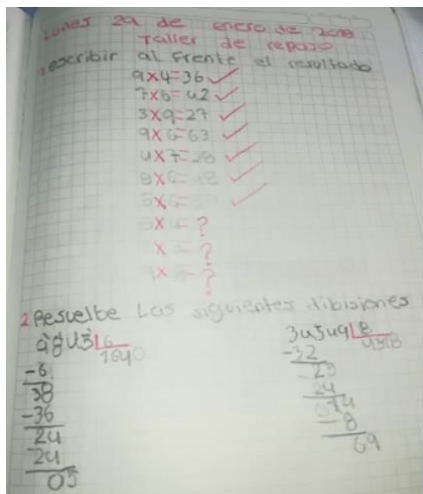 Lunes 29 de enero de 2018
Taller de repaso
1 escribir al frente el resultado
9x4=36
7x6=42
3x9=27
9x6=63
4x7=28
8x6=
5x6=
x4=?
x=?
x=?
2 Resuelbe Los siguientes dibisiones
9843 6 34549 8
1640
-6 -32
38
-36 24
24 -8
24 69
03